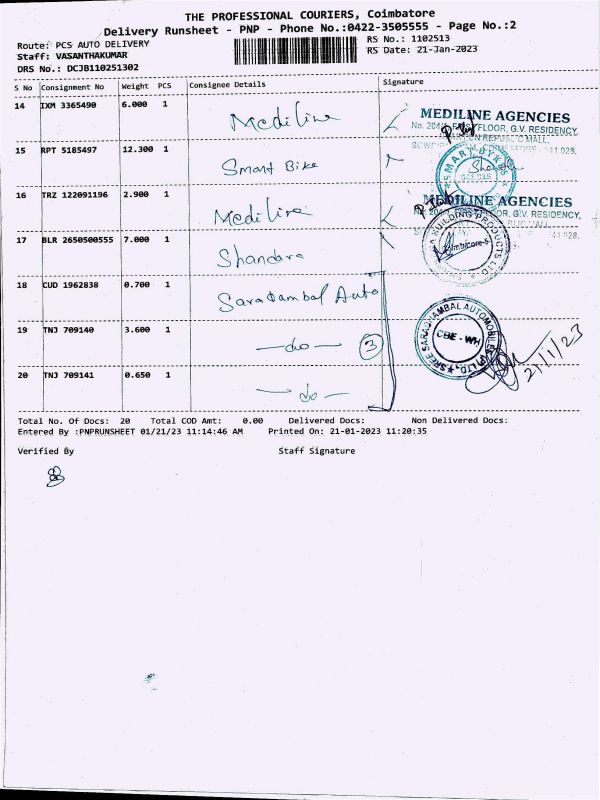 THE PROFESSIONAL COURIERS, Coimbatore
Delivery Runsheet - PNP - Phone No.:0422-3505555 - Page No.:2
Route: PCS AUTO DELIVERY
RS No.: 1102513
Staff: VASANTHAKUMAR
RS Date: 21-Jan-2023
DRS No.: DCJB110251302
S No Consignment No Weight PCS Consignee Details Signature
14 IXM 3365490 6.000 1 Mediline
MEDILINE AGENCIES
FLOOR, G.V. RESIDENCY,
MALL,
15 RPT 5185497 12.300 1 Smart Bike
16 TRZ 122091196 2.900 1 Mediline
MEDILINE AGENCIES
FLOOR, G.V. RESIDENCY,
17 BLR 2650500555 7.000 1 Shandara
BUILDING PRODUCTS
18 CUD 1962838 0.700 1 Saradambal Auto
19 TNJ 709140 3.600 1 —do— 3
SREE SARADHAMBAL AUTOMOBILES (P) LTD.,
CBE - WH
21/1/23
20 TNJ 709141 0.650 1 —do—
Total No. Of Docs: 20 Total COD Amt: 0.00 Delivered Docs: Non Delivered Docs:
Entered By :PNPRUNSHEET 01/21/23 11:14:46 AM Printed On: 21-01-2023 11:20:35
Verified By Staff Signature